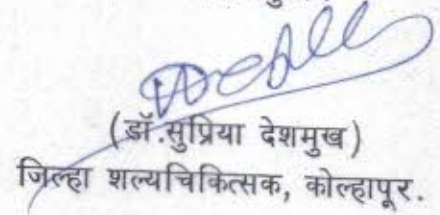 (डॉ.सुप्रिया देशमुख)
जिल्हा शल्यचिकित्सक, कोल्हापूर.